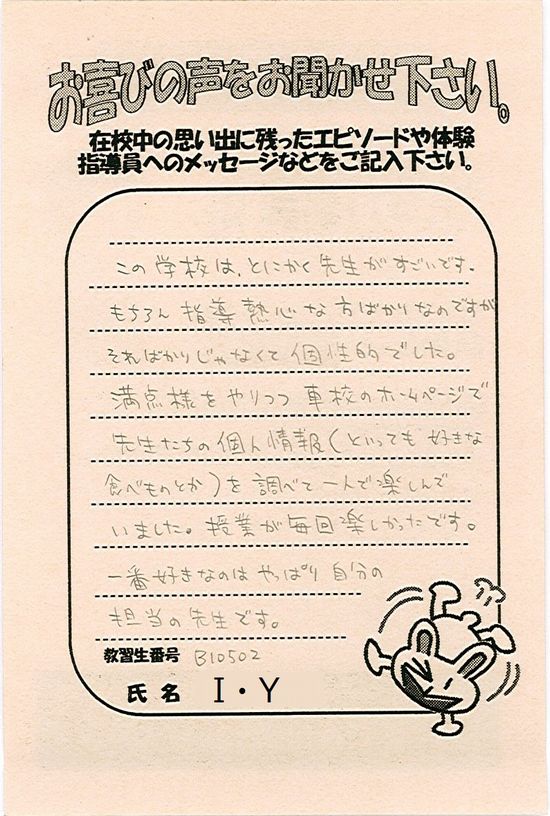 お喜びの声をお聞かせ下さい。
在校中の思い出に残ったエピソードや体験
指導員へのメッセージなどをご記入下さい。
この学校は、とにかく先生がすごいです。
もちろん指導熱心な方ばかりなのですが
そればかりじゃなくて個性的でした。
満点様をやりつつ車校のホームページで
先生たちの個人情報(といっても好きな
食べものとか)を調べて一人で楽しんで
いました。授業が毎回楽しかったです。
一番好きなのはやっぱり自分の
担当の先生です。
教習生番号 B10502
氏名 I・Y